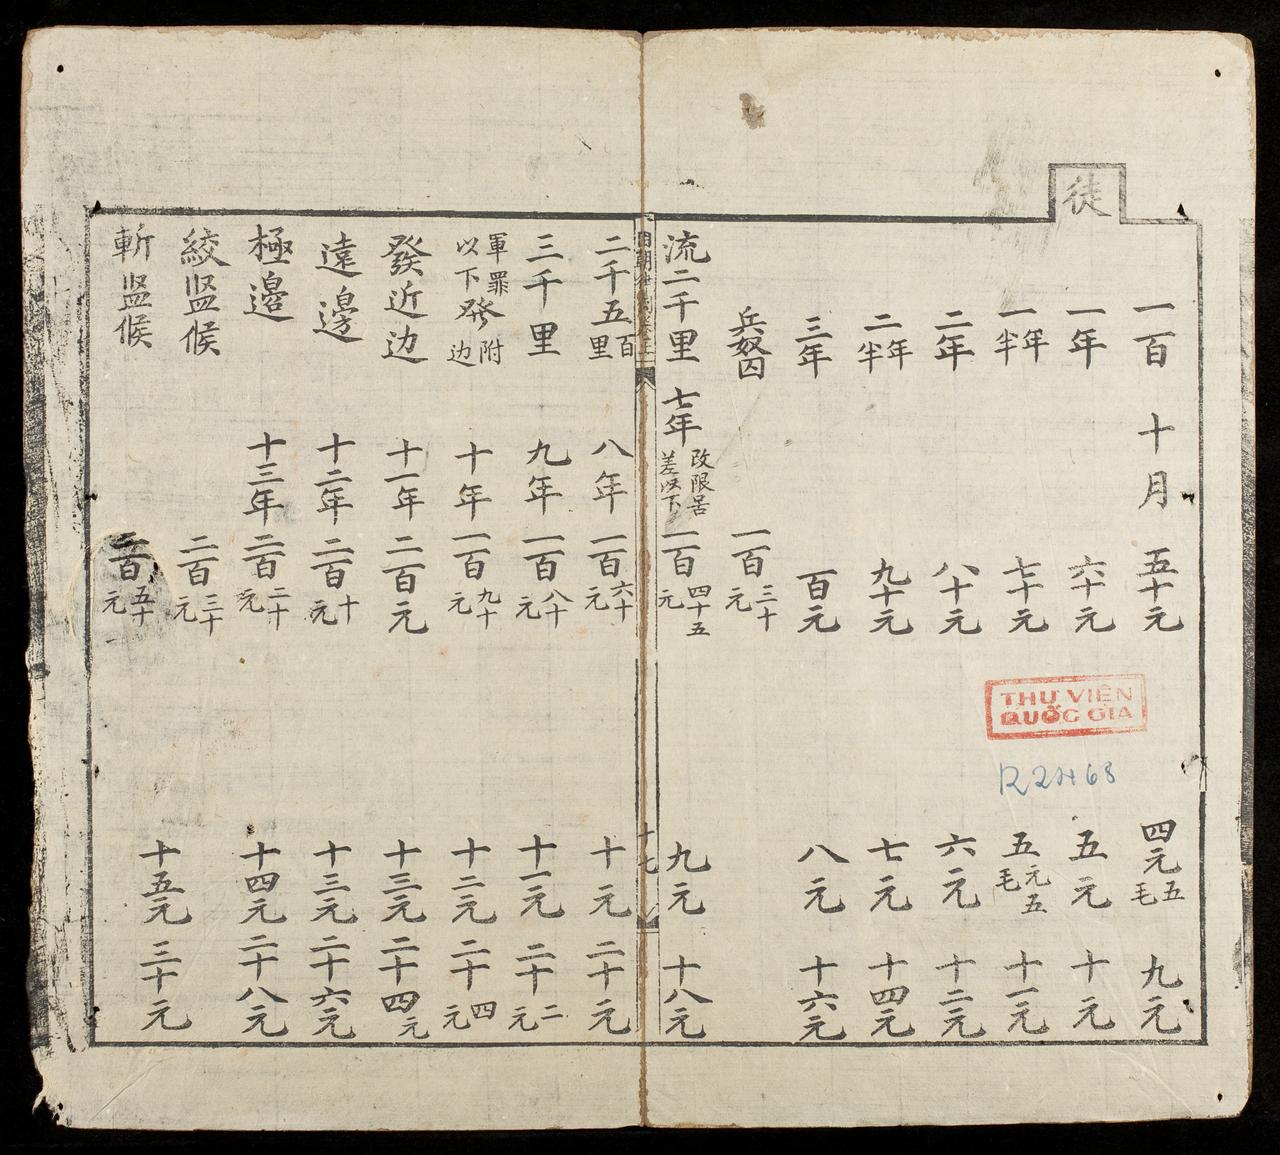 徒
一百 十月 五十元 四元五毛 九元
一年 六十元 五元 十元
一年半 七十元 五元五毛 十一元
二年 八十元 六元 十二元
二年半 九十元 七元 十四元
三年 百元 八元 十六元
兵奴囚 一百三十元
流二千里 七年 改限苦差以下 一百四十五元 九元 十八元
十七
二千五百里 八年 一百六十元 十元 二十元
三千里 九年 一百八十元 十一元 二十二元
軍罪以下發附边 十年 一百九十元 十二元 二十四元
發近边 十一年 二百元 十三元 二十四元
遠邊 十二年 二百十元 十三元 二十六元
極邊 十三年 二百二十元 十四元 二十八元
絞监候 二百三十元
斬监候 二百五十元 十五元 三十元
THƯ VIỆN
QUỐC GIA
R2468